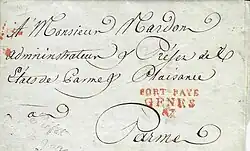 A Monsieur Nardon
administrateur & Préfet de
Etats de Parme & Plaisance
PORT-PAYE
GENES
87
a
Parme